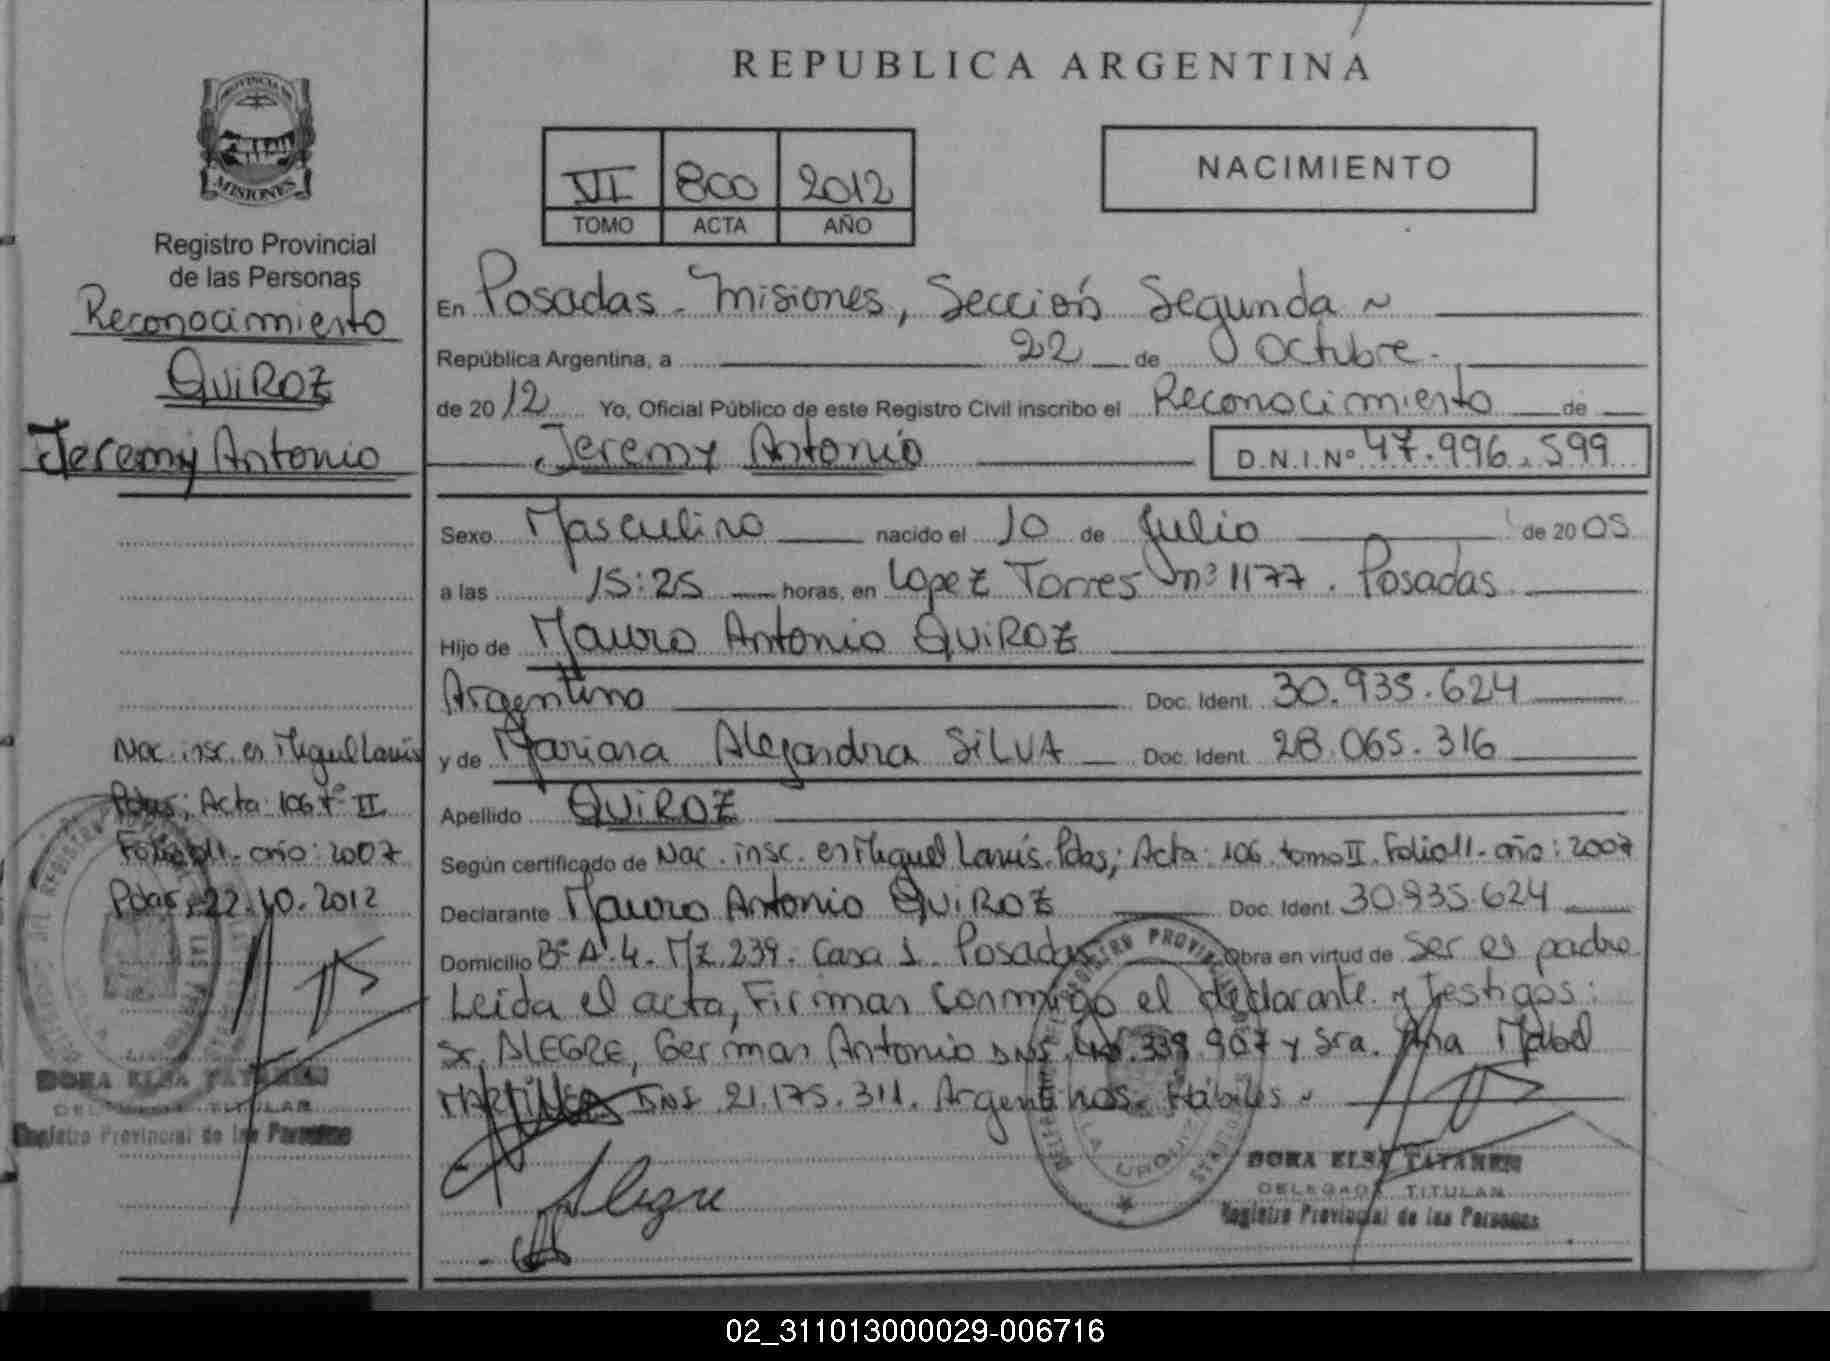 REPUBLICA ARGENTINA
PROVINCIA DE
MISIONES
Registro Provincial
de las Personas
Reconocimiento
QUIROZ
Jeremy Antonio
Nac. insc. en Miguel Lanús
Pdas; Acta: 106 tº II
Folio 11 - año: 2007
Pdas, 22.10.2012
DORA ELSA
DELEGADA TITULAR
Registro Provincial de las Personas
VII 800 2012
TOMO ACTA AÑO
NACIMIENTO
En Posadas - Misiones, Sección Segunda ~
República Argentina, a 22 de Octubre.
de 20 12 Yo, Oficial Público de este Registro Civil inscribo el Reconocimiento de
Jeremy Antonio D.N.I.Nº 47.996.599
Sexo Masculino nacido el 10 de Julio de 20 05
a las 15:25 horas, en Lopez Torres nº 1177. Posadas
Hijo de Mauro Antonio QUIROZ
Argentino Doc. Ident. 30.935.624
y de Mariana Alejandra SILVA Doc. Ident. 28.065.316
Apellido QUIROZ
Según certificado de Nac. insc. en Miguel Lanús. Pdas; Acta: 106 tomo II. Folio 11 - año: 2007
Declarante Mauro Antonio QUIROZ Doc. Ident. 30.935.624
Domicilio Bº A.4. Mz. 239. Casa 1. Posadas Obra en virtud de Ser el padre
Leida el acta, Firman conmigo el declarante y testigos:
Sr. ALEGRE, German Antonio DNI 339.907 y Sra. Ana Mabel
MARTINEZ DNI 21.175.311. Argentinos. Hábiles ~
Alegre
DORA ELSA
DELEGADA TITULAR
Registro Provincial de las Personas
02_311013000029-006716